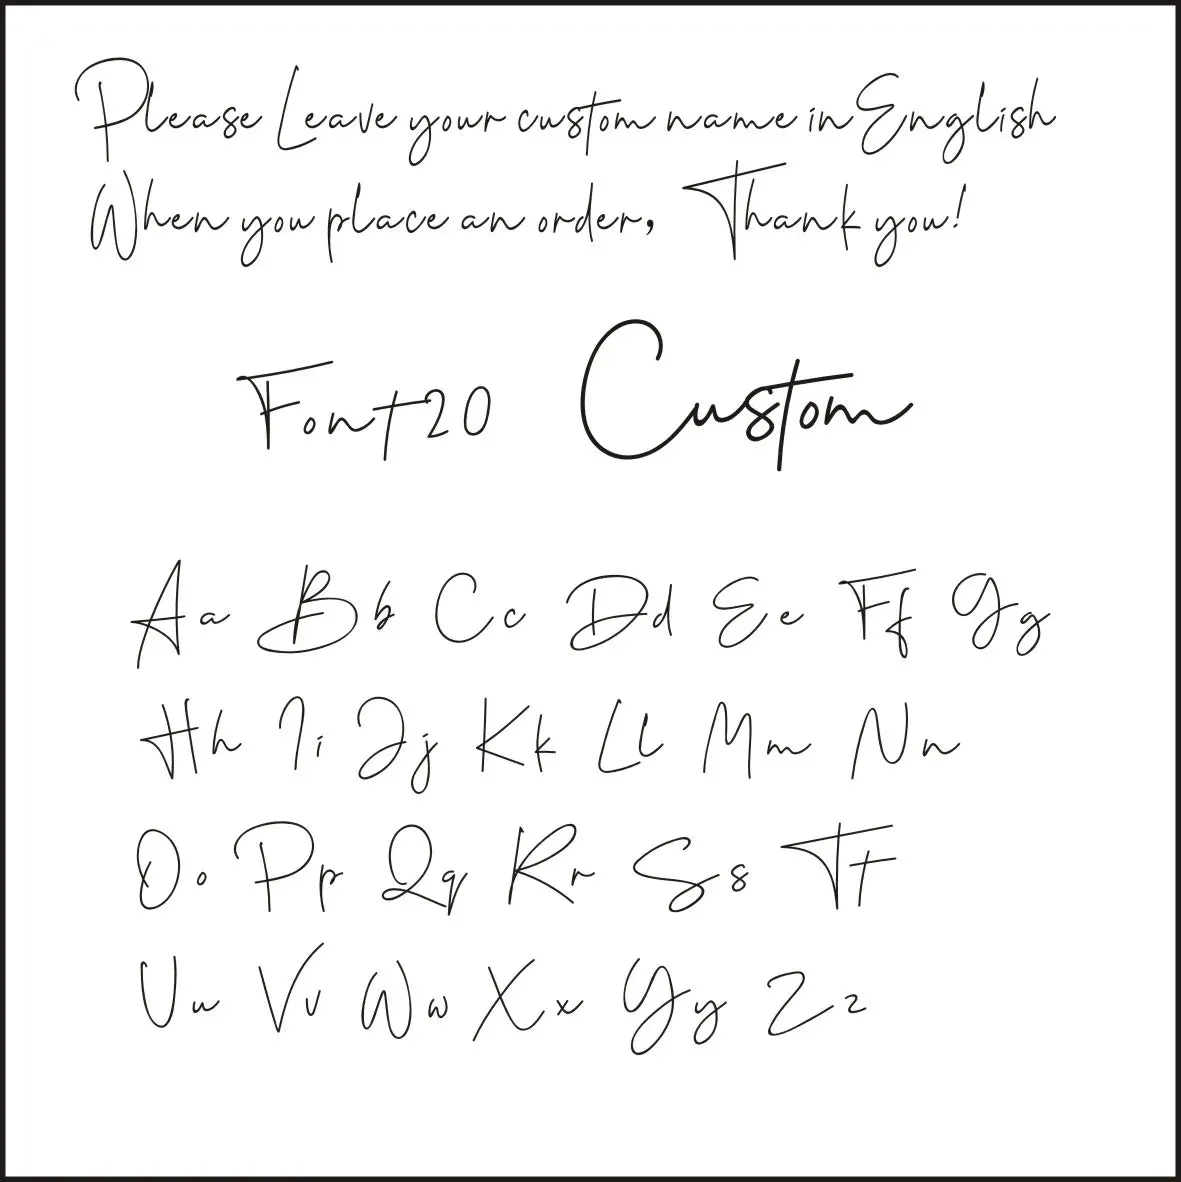 Please Leave your custom name in English
When you place an order, Thank you!
Font20 Custom
Aa Bb Cc Dd Ee Ff Gg
Hh Ii Jj Kk Ll Mm Nn
Oo Pp Qq Rr Ss Tt
Uu Vv Ww Xx Yy Zz